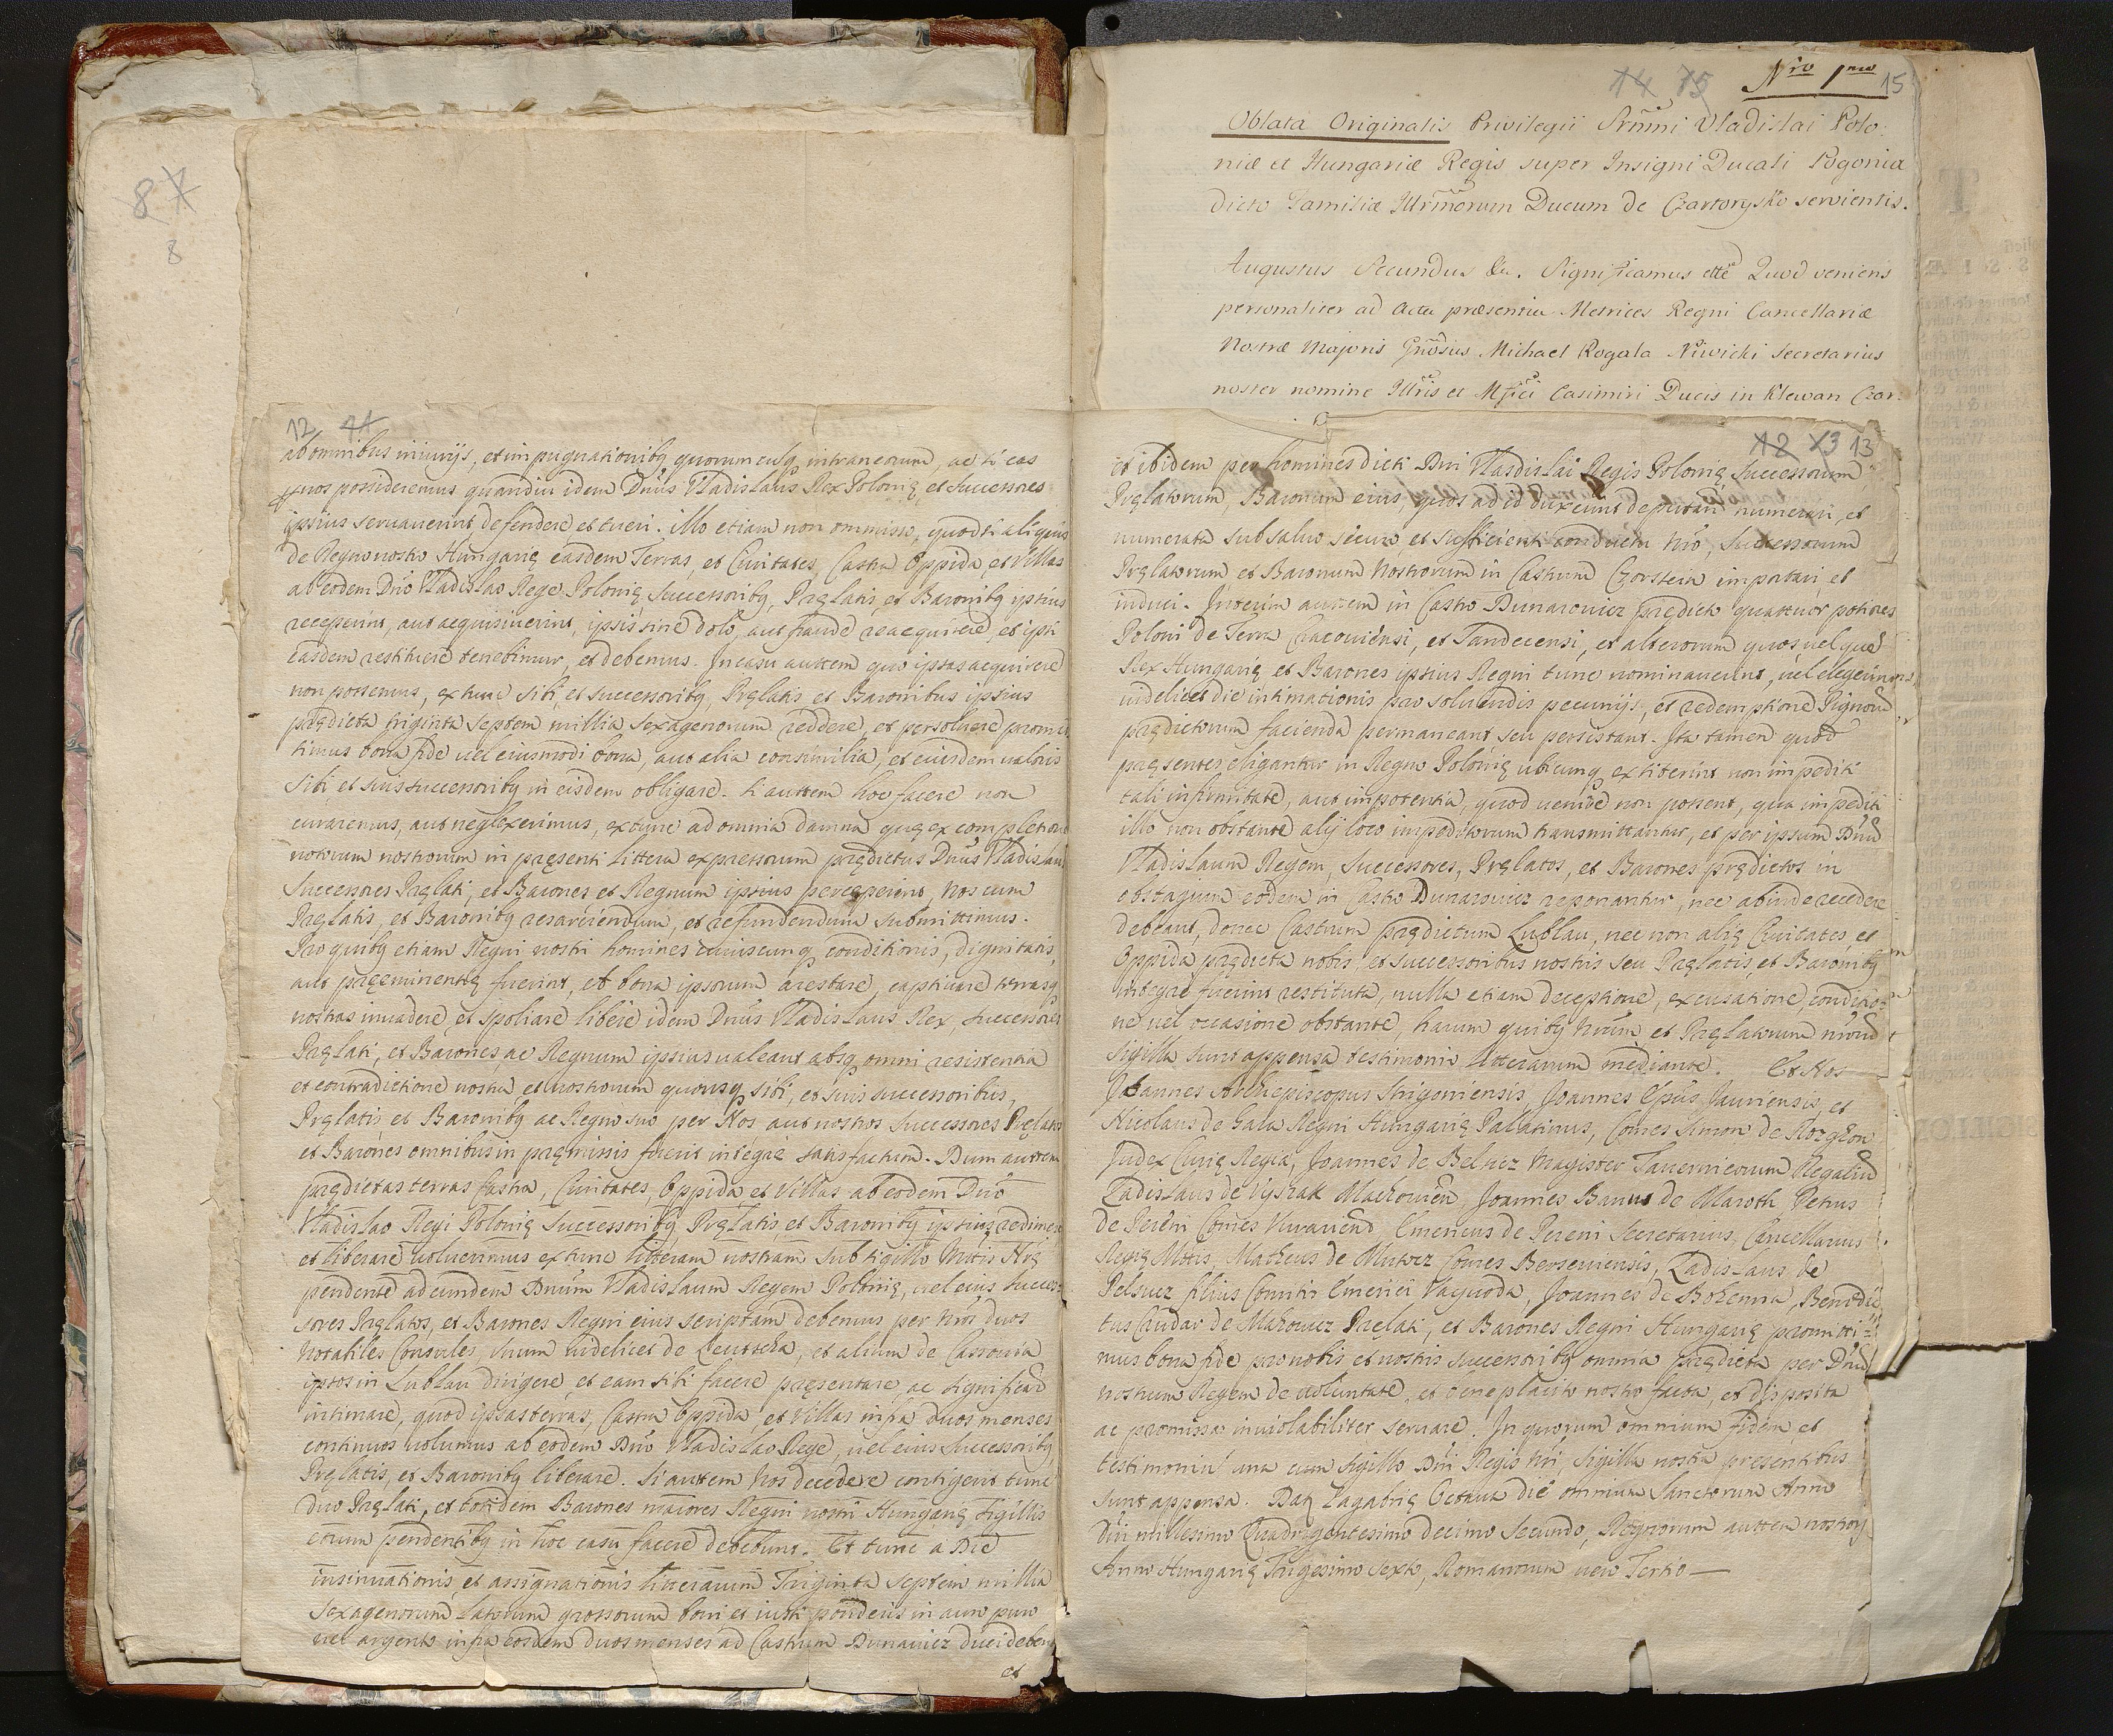 8 7
8
12 11
ab omnibus iniurijs, et impugnationibꝫ quorumcunqꝫ intraneorum, ac si eas
nos possideremus quandiu idem Dnūs Vladislaus Rex Polonię et Successores
ipsius seruauerint defendere et tueri. illo etiam non ommisso, quod si aliquis
de Regno nostro Hungarię easdem Terras, et Ciuitates, Castra Oppida, et Villas
ab eodem Dno Vladislao Rege Polonię, Successoribꝫ, Pręlatis, et Baronibꝫ ipsius
receperint, aut acquisiuerint, ipsis sine dolo, aut fraude reacquirere, et ipsi
easdem restituere tenebimur, et debemus. In casu auttem quo ipsas acquirere
non possemus, extunc sibi, et successoribꝫ, Pręlatis et Baronibus ipsius
prędicta triginta septem millia sexagenorum reddere, et persoluere promit
timus bona fide uel eiusmodi bona, aut alia consimilia, et eiusdem valoris
sibi, et suis successoribꝫ in eisdem obligare. si auttem hoc facere non
curaremus, aut neglexerimus, extunc ad omnia damna quę ex completione
notorum nostrorum in pręsenti littera expressorum prędictus Dnūs Vladislaus
Successores Pręlati, et Barones et Regnum ipsius perceperint, nos cum
Pręlatis, et Baronibꝫ resarciendum, et refundendum submittimus.
Pro quibꝫ etiam Regni nostri homines cuiuscunqꝫ conditionis, dignitatis,
aut pręeminentię fuerint, et bona ipsorum arestare, captiuare terrasqꝫ
nostras inuadere, et spoliare libere idem Dnūs Vladislaus Rex, Successores
Pręlati, et Barones, ac Regnum ipsius ualeant absqꝫ omni resistentia
et contradictione nostra et nostrorum quousqꝫ sibi, et suis successoribus,
Pręlatis et Baronibꝫ ac Regno suo per Nos aut nostros Successores Pręlatos
et Barones omnibus in pręmissis fuerit integre satisfactum. Dum auttem
prędictas terras Castra, Ciuitates, Oppida et Villas ab eodem Dno
Vladislao Regi Polonię Successoribꝫ, Pręlatis, et Baronibꝫ ipsius redimere
et liberare uoluerimus extunc litteram nostram sub sigillo Mttis Nrę
pendente ad eundem Dnum Vladislaum Regem Polonię, uel eius Succes-
sores Pręlatos, et Barones Regni eius scriptam debemus per Nros duos
Notabiles Consules, Unum uidelicet de Leutscha, et alium de Cassouia
ipsos in Lublau dirigere, et eam sibi facere pręsentare, ac significare
intimare, quod ipsas terras, Castra Oppida, et Villas infra duos menses
continuos uolumus ab eodem Dno Vladislao Rege, uel eius Successoribꝫ
Pręlatis, et Baronibꝫ liberare. Si auttem Nos decedere contigerit tunc
duo Pręlati, et totidem Barones maiores Regni nostri Hungarię sigillis
eorum pendentibꝫ in hoc casu facere debebunt. Et tunc a Die
insinuationis, et assignationis litterarum Triginta septem millia
Sexagenorum latorum grossorum boni et iusti ponderis in auro puro
uel argento infra eosdem duos menses ad Castrum Dunauicz duci debent
et
14 15 Nro 1mo 15
Oblata Originalis Privilegii Srnmi Vladislai Polo-
niæ et Hungariæ Regis super Insigni Ducali Pogonia
dicto Familiæ Illrmorum Ducum de Czartorysko servientis.
Augustus Secundus &c. Significamus etc Quod veniens
personaliter ad Acta præsentia Metrices Regni Cancellariæ
Nostræ Majoris Gnosus Michael Rogala Niwicki Secretarius
noster nomine Illris et Mfici Casimiri Ducis in Klewan Czar-
12 13 13
et ibidem per homines dicti Dni Vladislai Regis Polonię Successorum
Pręlatorum, Baronum eius, quos ad id duxerint deputari numerari, et
numerata sub saluo securo, et sufficienti conductu nro, Successorum
Pręlatorum et Baronum Nostrorum in Castrum Czorstein importari, et
induci. Interim auttem in Castro Dunarouicz prędicto quattuor potiores
Poloni de Terra Cracouiensi, et Sandecensi, et alterorum quos, uel quę
Rex Hungarię et Barones ipsius Regni tunc nominauerint, uel elegerint
uidelicet die intimationis pro soluendis pecunijs, et redemptione Pignorū
prędictorum facienda permaneant seu persistant. Ita tamen quod
pręsentes eligantur in Regno Polonię ubicunqꝫ extiterint non impediti
tali infirmitate, aut impotentia, quod uenire non possent, qua impediti
illo non obstante alij loco impeditorum transmittantur, et per ipsum Dnū
Vladislaum Regem, Successores, Pręlatos, et Barones prędictos in
obstagium eodem in Castro Dunarouicz reponantur, nec abinde recedere
debeant, donec Castrum prędictum Lublau, nec non alię Ciuitates, et
Oppida prędicta nobis, et successoribus nostris seu Pręlatis et Baronibꝫ
integre fuerint restituta, nulla etiam deceptione, excusatione, conditio-
ne uel occasione obstante, harum quibꝫ nrūm, et Pręlatorum nrorū
sigilla sunt appensa testimonio litterarum mediante. Et Nos
Joannes Archiepiscopus Strigoniensis, Joannes Epūs Jauriensis, et
Nicolaus de Gala Regni Hungarię Palatinus, Comes Simon de Rozgon
Judex Curię Regię, Joannes de Belsicz Magister Tauernicorum Regaliū
Ladislaus de Vyszak Machouien, Joannes Banus de Maroth, Petrus
de Pereni Comes Vivariend Emericus de Pereni Secretarius, Cancellarius
Regię Mttis, Matheus de Mutocz Comes Berseuiensis, Ladislaus de
Pelsucz filius Comitis Emerici Vayuoda, Joannes de Bozenna, Benedic-
tus Chudar de Makouicz Prelati, et Barones Regni Hungarię promitti-
mus bona fide pro nobis et nostris successoribꝫ omnia prędicta per Dnū
nostrum Regem de uoluntate, et beneplacito nostro facta, et disposita
ac promissa inuiolabiliter seruare. In quorum omnium fidem, et
testimoniū una cum Sigillo Dni Regis Nri, Sigilla nostra presentibus
sunt appensa. Datꝫ Zagabrię Octaua die omnium Sanctorum Anno
Dni millesimo Quadringentesimo decimo secundo, Regnorum auttem nostroꝝ
Anno Hungarię Trigesimo sexto, Romanorum uero Tertio